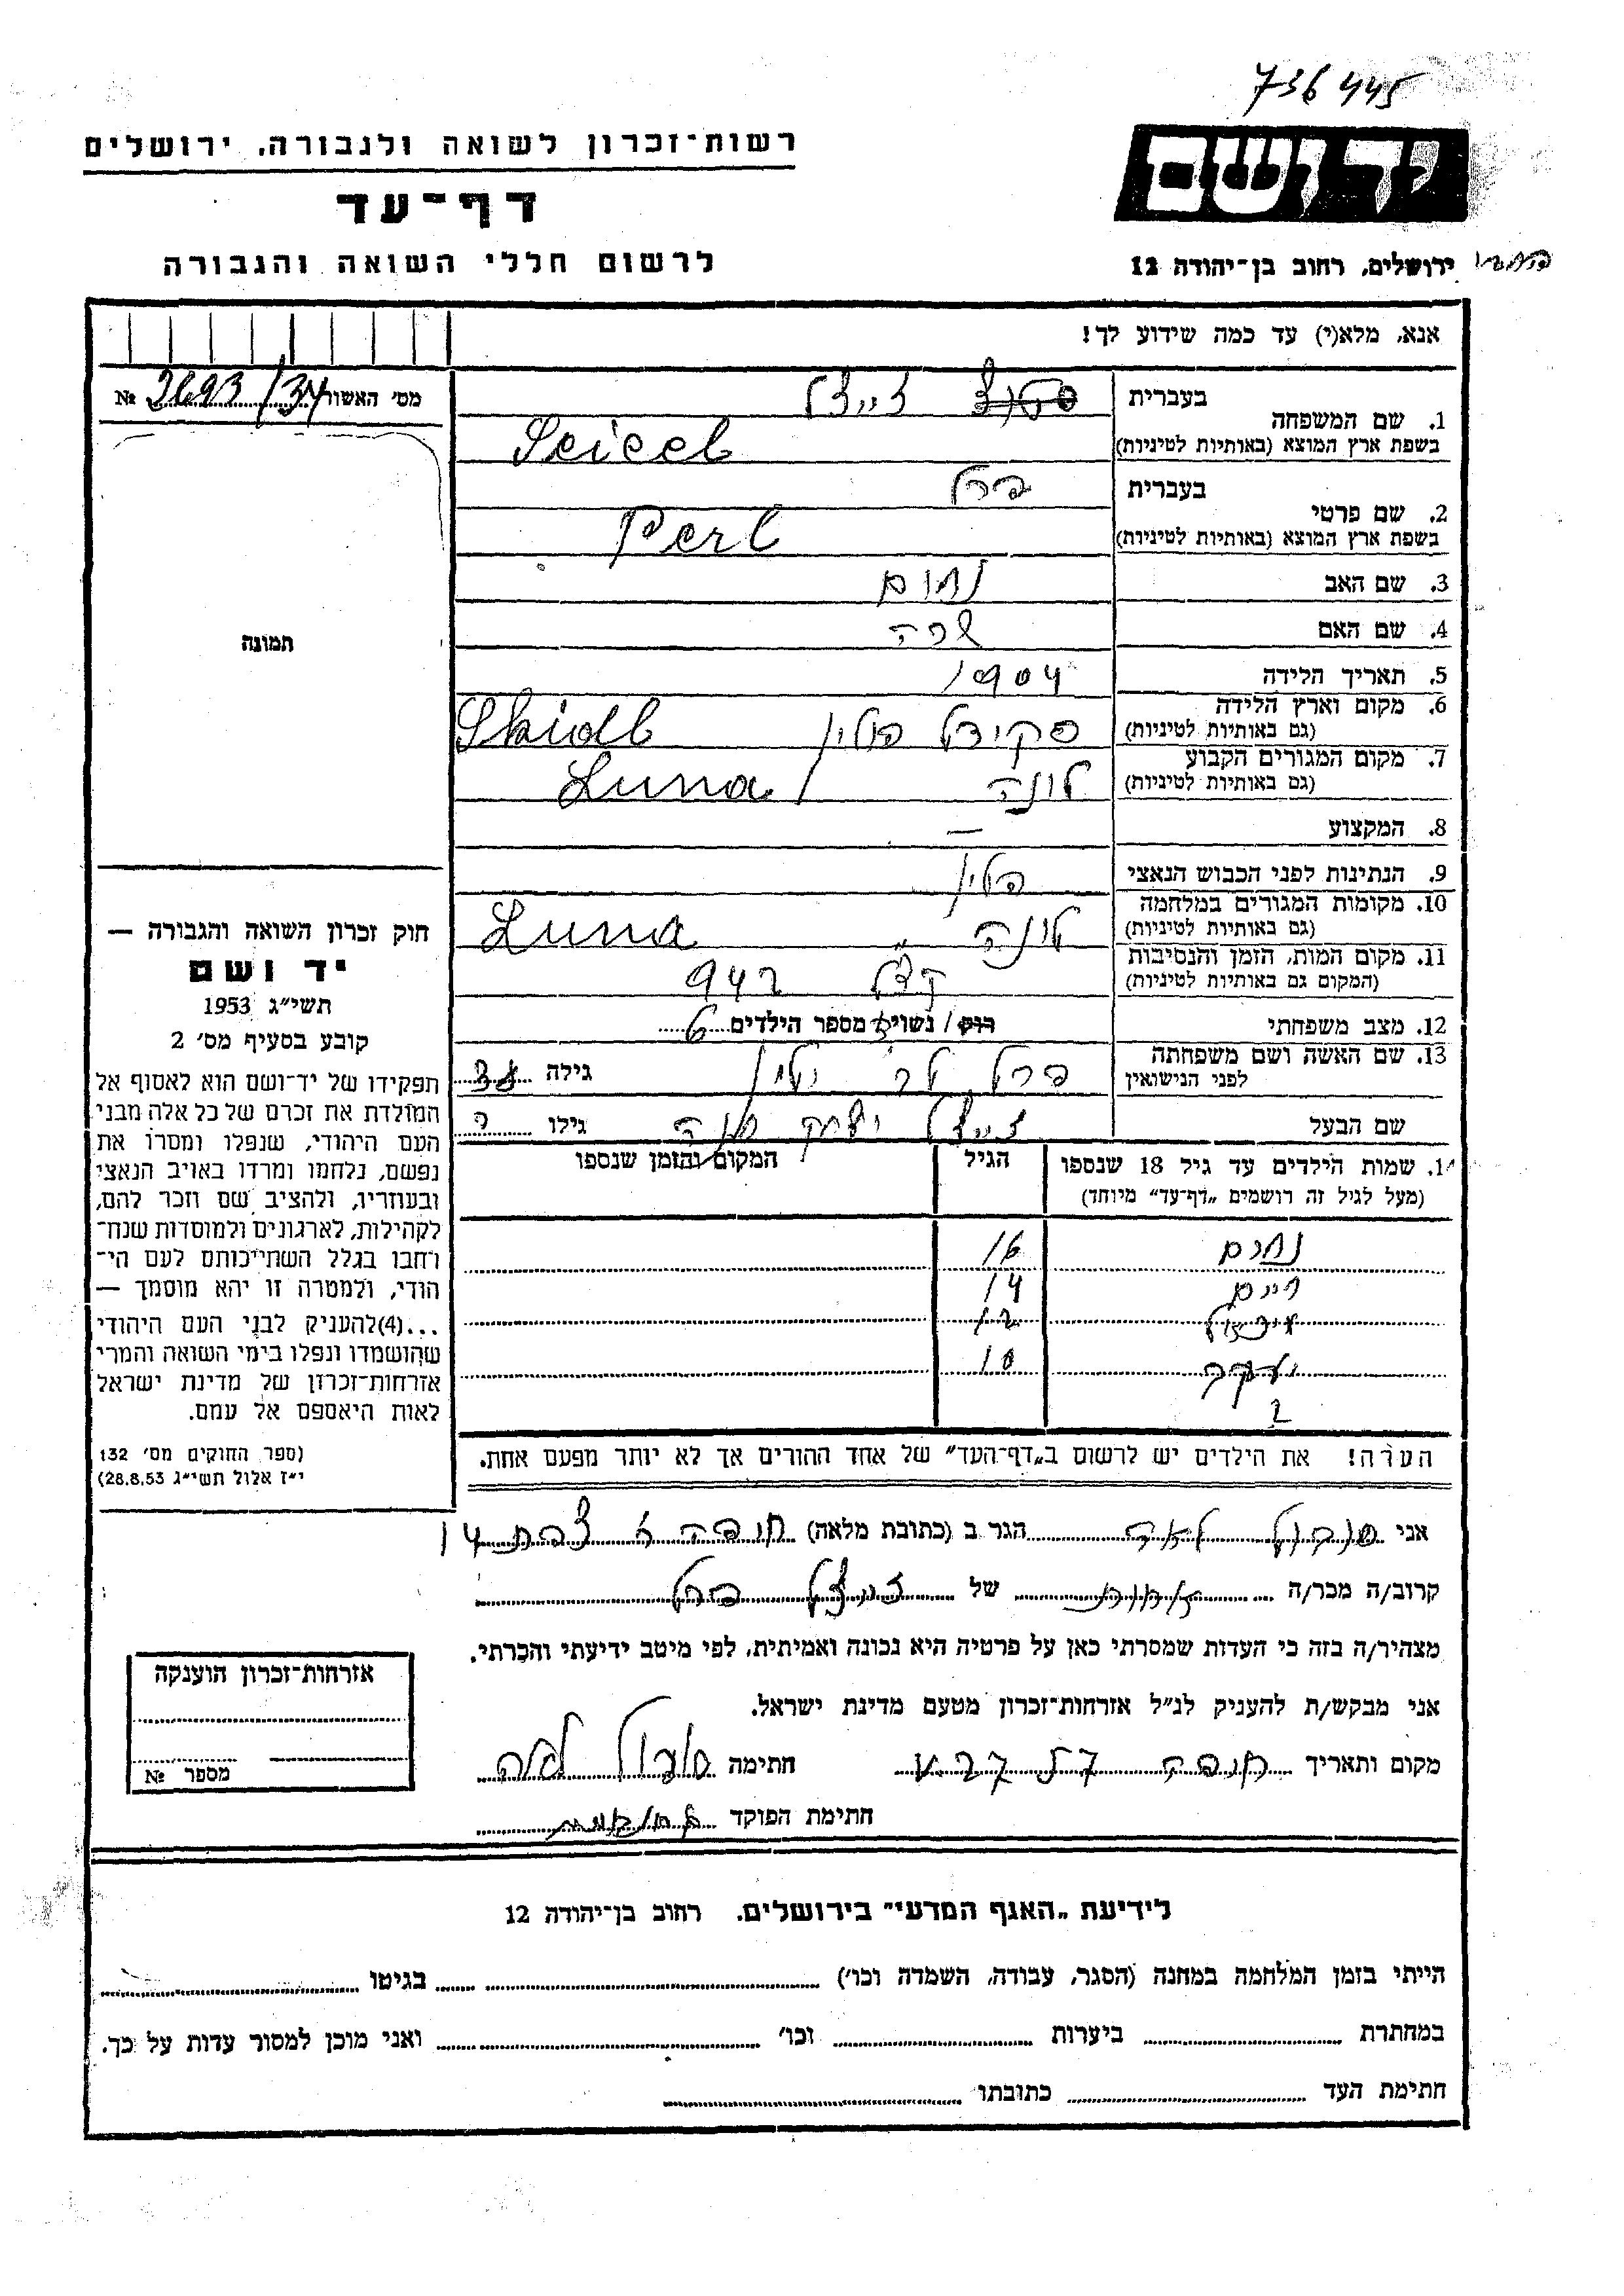 736445
רשות-זכרון לשואה ולגבורה, ירושלים
דף-עד
לרשום חללי השואה והגבורה
יד ושם
ירושלים, רחוב בן-יהודה 12
אנא, מלא(י) עד כמה שידוע לך!
מס׳ האשור 2693/34 №
תמונה
1. שם המשפחה
בעברית
בשפת ארץ המוצא (באותיות לטיניות) Seicel
2. שם פרטי
בעברית פרל
בשפת ארץ המוצא (באותיות לטיניות) Perl
3. שם האב נחום
4. שם האם שרה
5. תאריך הלידה 1904
6. מקום וארץ הלידה
(גם באותיות לטיניות) סקידל פולין Skidl
7. מקום המגורים הקבוע
(גם באותיות לטיניות) לונה Luna
8. המקצוע —
9. הנתינות לפני הכבוש הנאצי פולין
10. מקומות המגורים במלחמה
(גם באותיות לטיניות) לונה Luna
11. מקום המות, הזמן והנסיבות
(המקום גם באותיות לטיניות) 942
12. מצב משפחתי רווק / נשוי מספר הילדים 6
13. שם האשה ושם משפחתה
לפני הנישואין פרל גילה 38
שם הבעל יצחק גילו ?
14. שמות הילדים עד גיל 18 שנספו
(מעל לגיל זה רושמים „דף-עד״ מיוחד)
הגיל
המקום והזמן שנספו
נחום 16
חיים 14
12
יעקב 10
2
הערה! את הילדים יש לרשום ב„דף-העד״ של אחד ההורים אך לא יותר מפעם אחת.
חוק זכרון השואה והגבורה —
יד ושם
תשי״ג 1953
קובע בסעיף מס׳ 2
תפקידו של יד-ושם הוא לאסוף אל
המולדת את זכרם של כל אלה מבני
העם היהודי, שנפלו ומסרו את
נפשם, נלחמו ומרדו באויב הנאצי
ובעוזריו, ולהציב שם וזכר להם,
לקהילות, לארגונים ולמוסדות שנח־
רחבו בגלל השתייכותם לעם הי־
הודי, ולמטרה זו יהא מוסמך —
...(4)להעניק לבני העם היהודי
שהושמדו ונפלו בימי השואה והמרי
אזרחות-זכרון של מדינת ישראל
לאות היאספם אל עמם.
(ספר החוקים מס׳ 132
י״ז אלול תשי״ג 28.8.53)
אני לאה הגר ב (כתובת מלאה) חיפה 14
קרוב/ה מכר/ה אחות של פרל
מצהיר/ה בזה כי העדות שמסרתי כאן על פרטיה היא נכונה ואמיתית, לפי מיטב ידיעתי והכרתי.
אני מבקש/ת להעניק לנ״ל אזרחות-זכרון מטעם מדינת ישראל.
מקום ותאריך חיפה חתימה לאה
חתימת הפוקד
אזרחות-זכרון הוענקה
מספר №
לידיעת „האגף המדעי״ בירושלים. רחוב בן-יהודה 12
הייתי בזמן המלחמה במחנה (הסגר, עבודה, השמדה וכו׳) בגיטו
במחתרת ביערות וכו׳ ואני מוכן למסור עדות על כך.
חתימת העד כתובתו